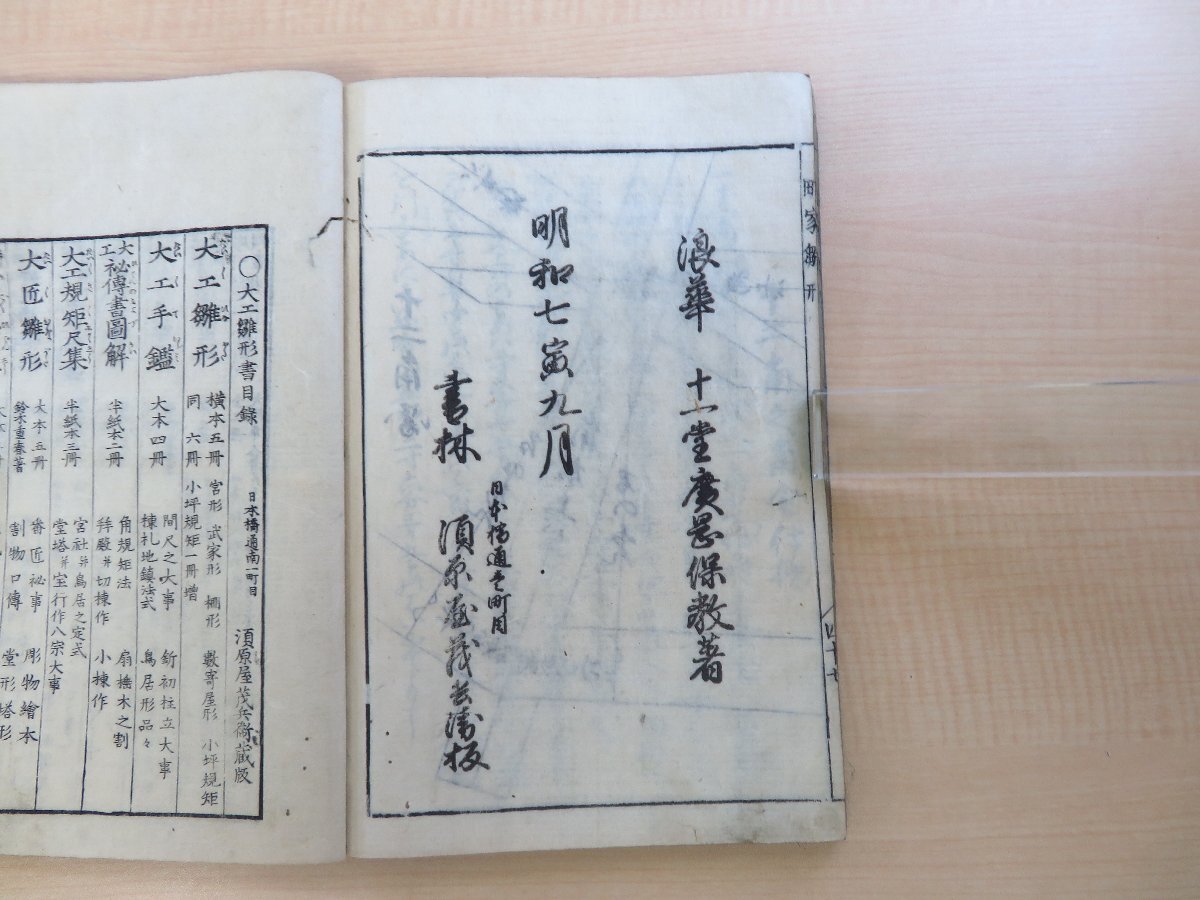 浪華 十一堂廣岡保教著
明和七寅九月
日本橋通壱町目
書林 須原屋茂兵衛板
四十七
〇大工雛形書目録 日本橋通南一町目 須原屋茂兵衛蔵版
大工雛形 横本五冊 宮形 武家形 棚形 數寄屋形 小坪規矩
同 六冊 小坪規矩一冊增
大工手鑑 大本四冊 間尺之大事 釿初柱立大事
棟札地鎮法式 鳥居形品々
大工秘傳書圖解 半紙本二冊 角規矩法 扇椽木之割
拜殿并切棟作 小棟作
大工規矩尺集 半紙本三冊 宮社并鳥居之定式
堂塔并室行作八宗大事
大匠雛形 大本五冊 番匠祕事 彫物繪本
鈴木重春著 割物口傳 堂形塔形